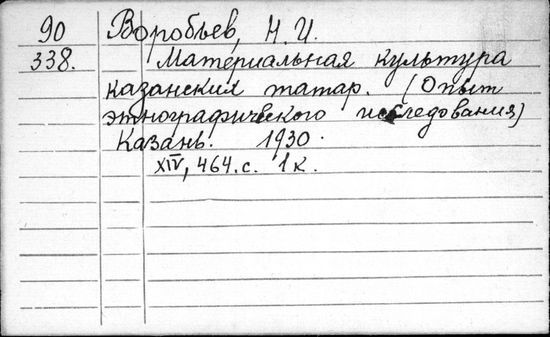 90 Воробьев, Н.И.
338. Материальная культура
казанских татар. (Опыт
этнографического исследования)
Казань. 1930.
XIV, 464.с. 1к.